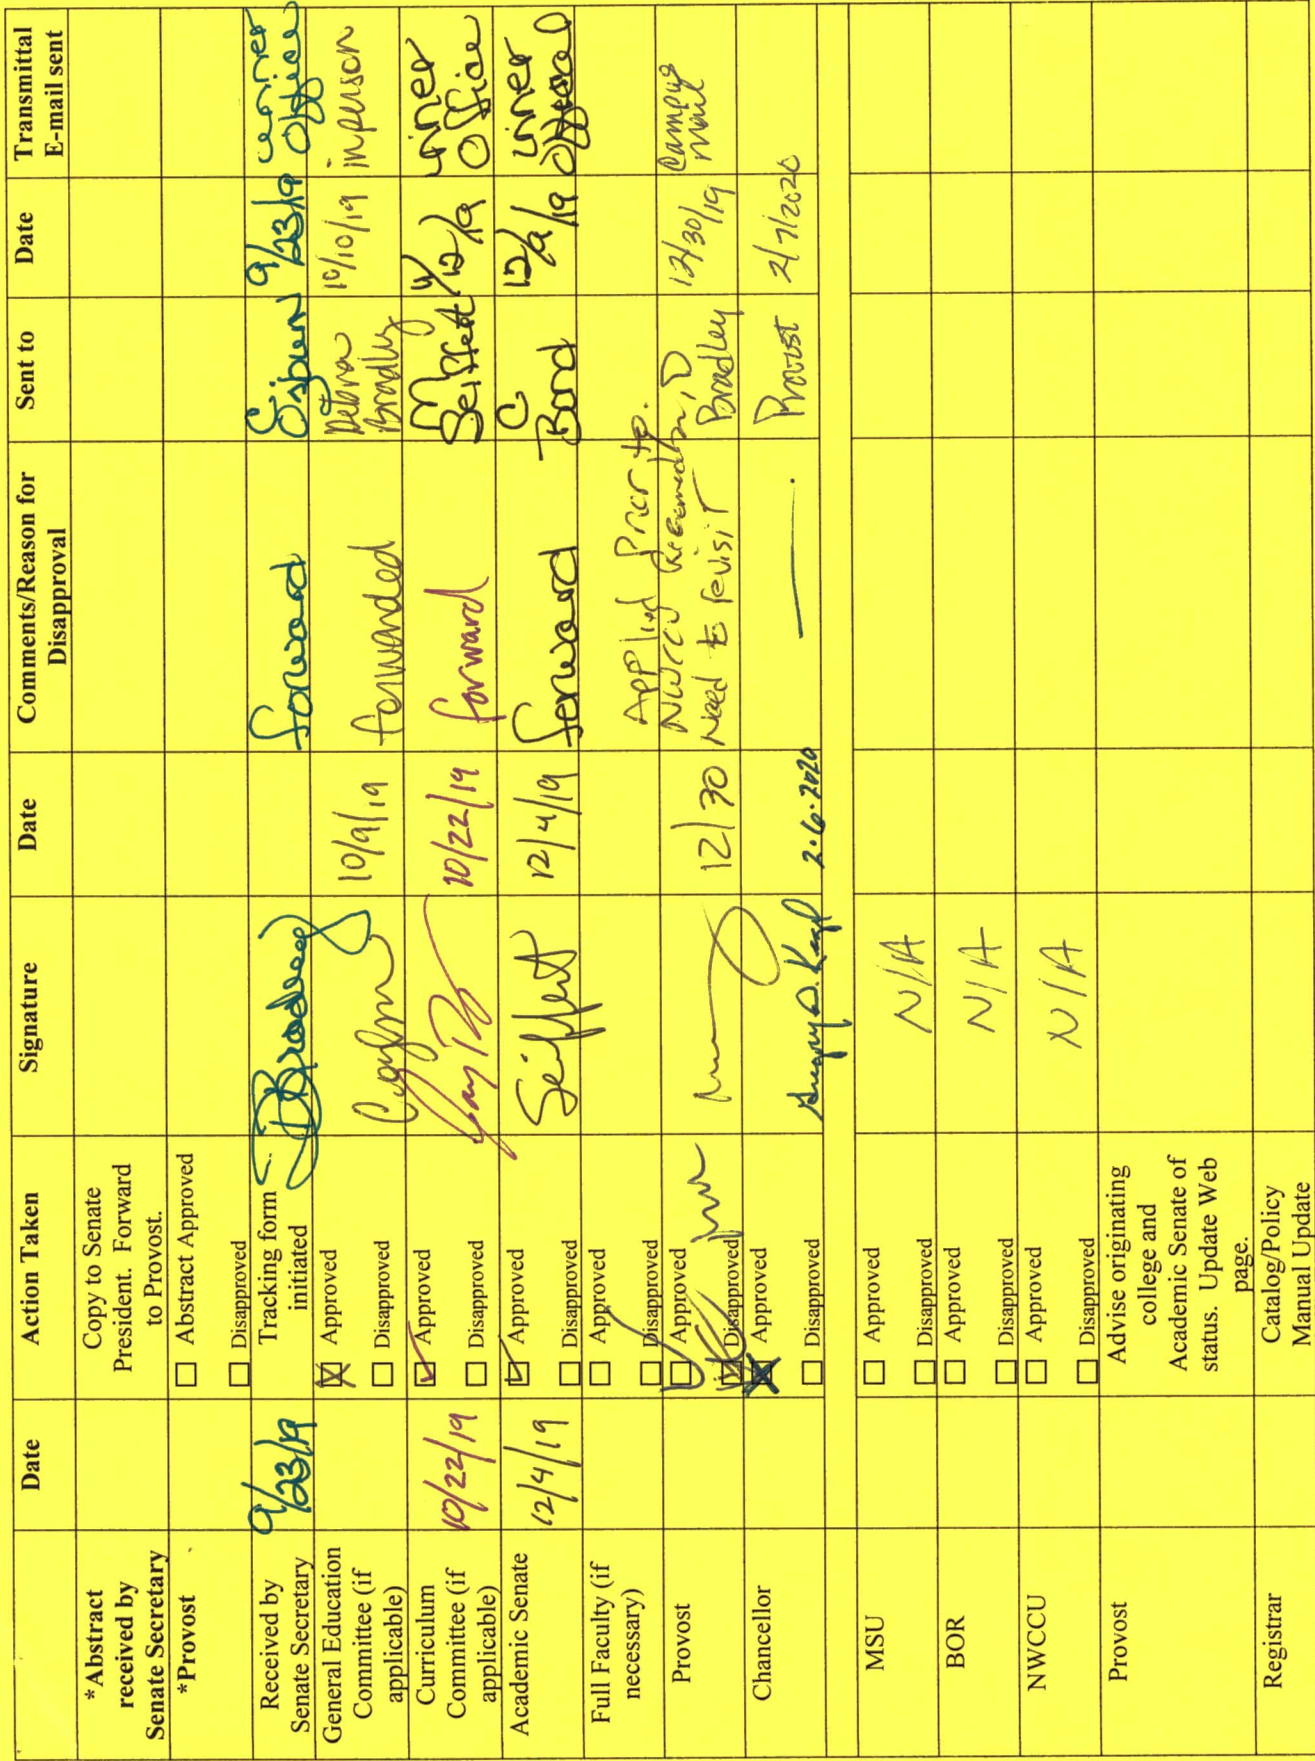 Date
Action Taken
Signature
Date
Comments/Reason for
Disapproval
Sent to
Date
Transmittal
E-mail sent
*Abstract
received by
Senate Secretary
Copy to Senate
President. Forward
to Provost.
*Provost
☐ Abstract Approved
☐ Disapproved
Received by
Senate Secretary
9/23/19
Tracking form
initiated
forward
9/23/19
office
General Education
Committee (if
applicable)
☒ Approved
☐ Disapproved
10/9/19
forwarded
Debra
Bradley
10/10/19
in person
Curriculum
Committee (if
applicable)
10/22/19
☑ Approved
☐ Disapproved
10/22/19
forward
M
Seiffert
12/9
Office
Academic Senate
12/4/19
☑ Approved
☐ Disapproved
Seiffert
12/4/19
forward
C
Bond
12/9/19
Full Faculty (if
necessary)
☐ Approved
☐ Disapproved
Provost
☐ Approved
☐ Disapproved
12/30
Applied Prior to.
NWCCU
Need to revisit
D
Bradley
12/30/19
Campus
mail
Chancellor
☒ Approved
☐ Disapproved
2.6.2020
Provost
2/7/2020
MSU
☐ Approved
☐ Disapproved
N/A
BOR
☐ Approved
☐ Disapproved
N/A
NWCCU
☐ Approved
☐ Disapproved
N/A
Provost
Advise originating
college and
Academic Senate of
status. Update Web
page.
Registrar
Catalog/Policy
Manual Update